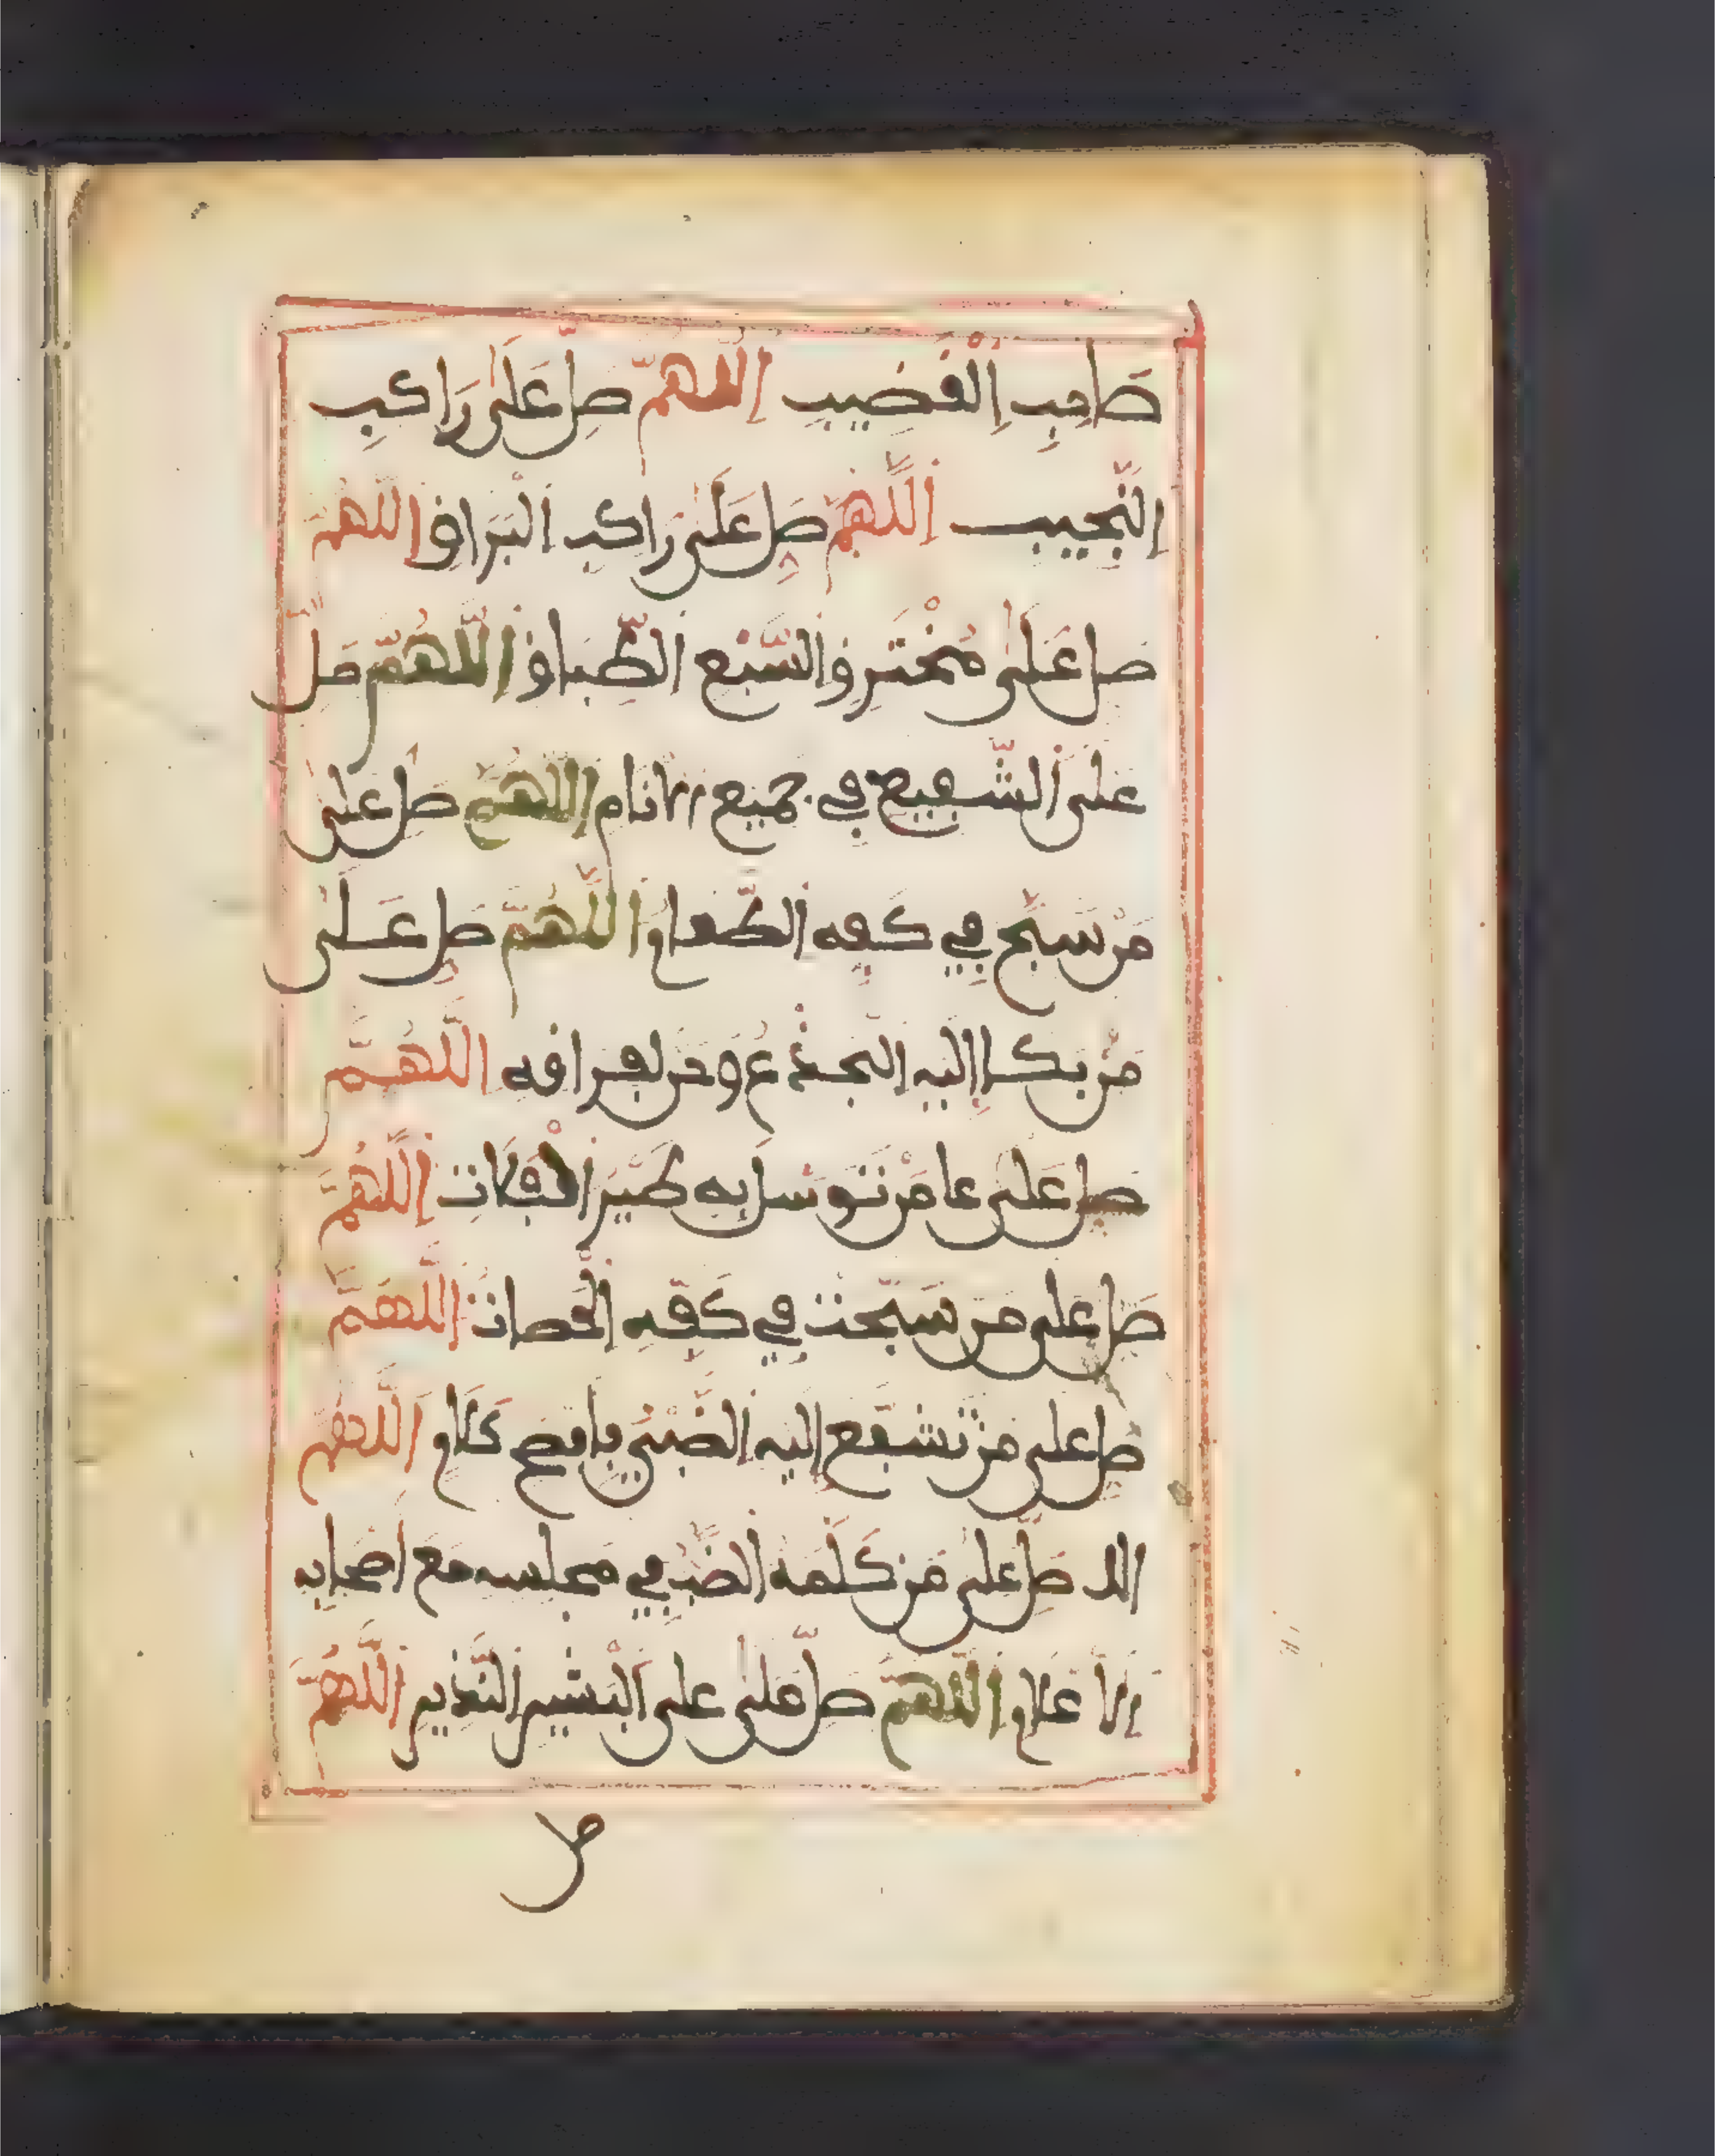 صَاحِبِ اِلْقَضِيبِ اِللَّهُمَّ صَلِّ عَلَىٰ رَاكِبِ
اِلنَّجِيبِ اَللَّهُمَّ صَلِّ عَلَىٰ رَاكِبِ اَلْبُرَاقِ اَللَّهُمَّ
صَلِّ عَلَىٰ مُخْتَرِقِ اَلسَّبْعِ اَلطِّبَاقِ اَللَّهُمَّ صَلِّ
عَلَى اَلشَّفِيعِ فِي جَمِيعِ الانَامِ اَللَّهُمَّ صَلِّ عَلَىٰ
مَنْ سَبَّحَ فِي كَفِّهِ اَلطَّعَامُ اَللَّهُمَّ صَلِّ عَلَىٰ
مَنْ بَكَا إِلَيْهِ اَلْجِذْعُ وَحَنَّ لِفِرَاقِهِ اَللَّهُمَّ
صَلِّ عَلَى عا مَنْ تَوَسَّلَ بِهِ طَيْرُ اَلْفَلَاتِ اِللَّهُمَّ
صَلِّ عَلَى مَنْ سَبَّحَتْ فِي كَفِّهِ اَلْحَصَاتُ اَللَّهُمَّ
صَلِّ عَلَى مَنْ تَشَفَّعَ إِلَيْهِ اَلضَّبْيُ بِأَفْصَحِ كَلَامٍ اَللَّهُمَّ
الد صَلِّ عَلَى مَنْ كَلَّمَهُ اَلضَّبُّ فِي مَجْلِسِهِ مَعَ أَصْحَابِهِ
اِلا عْلَامِ اَللَّهُمَّ صَلِّ عَلَىٰ على اَلْبَشِيرِ اَلنَّذِيرِ اَللَّهُمَّ
صل